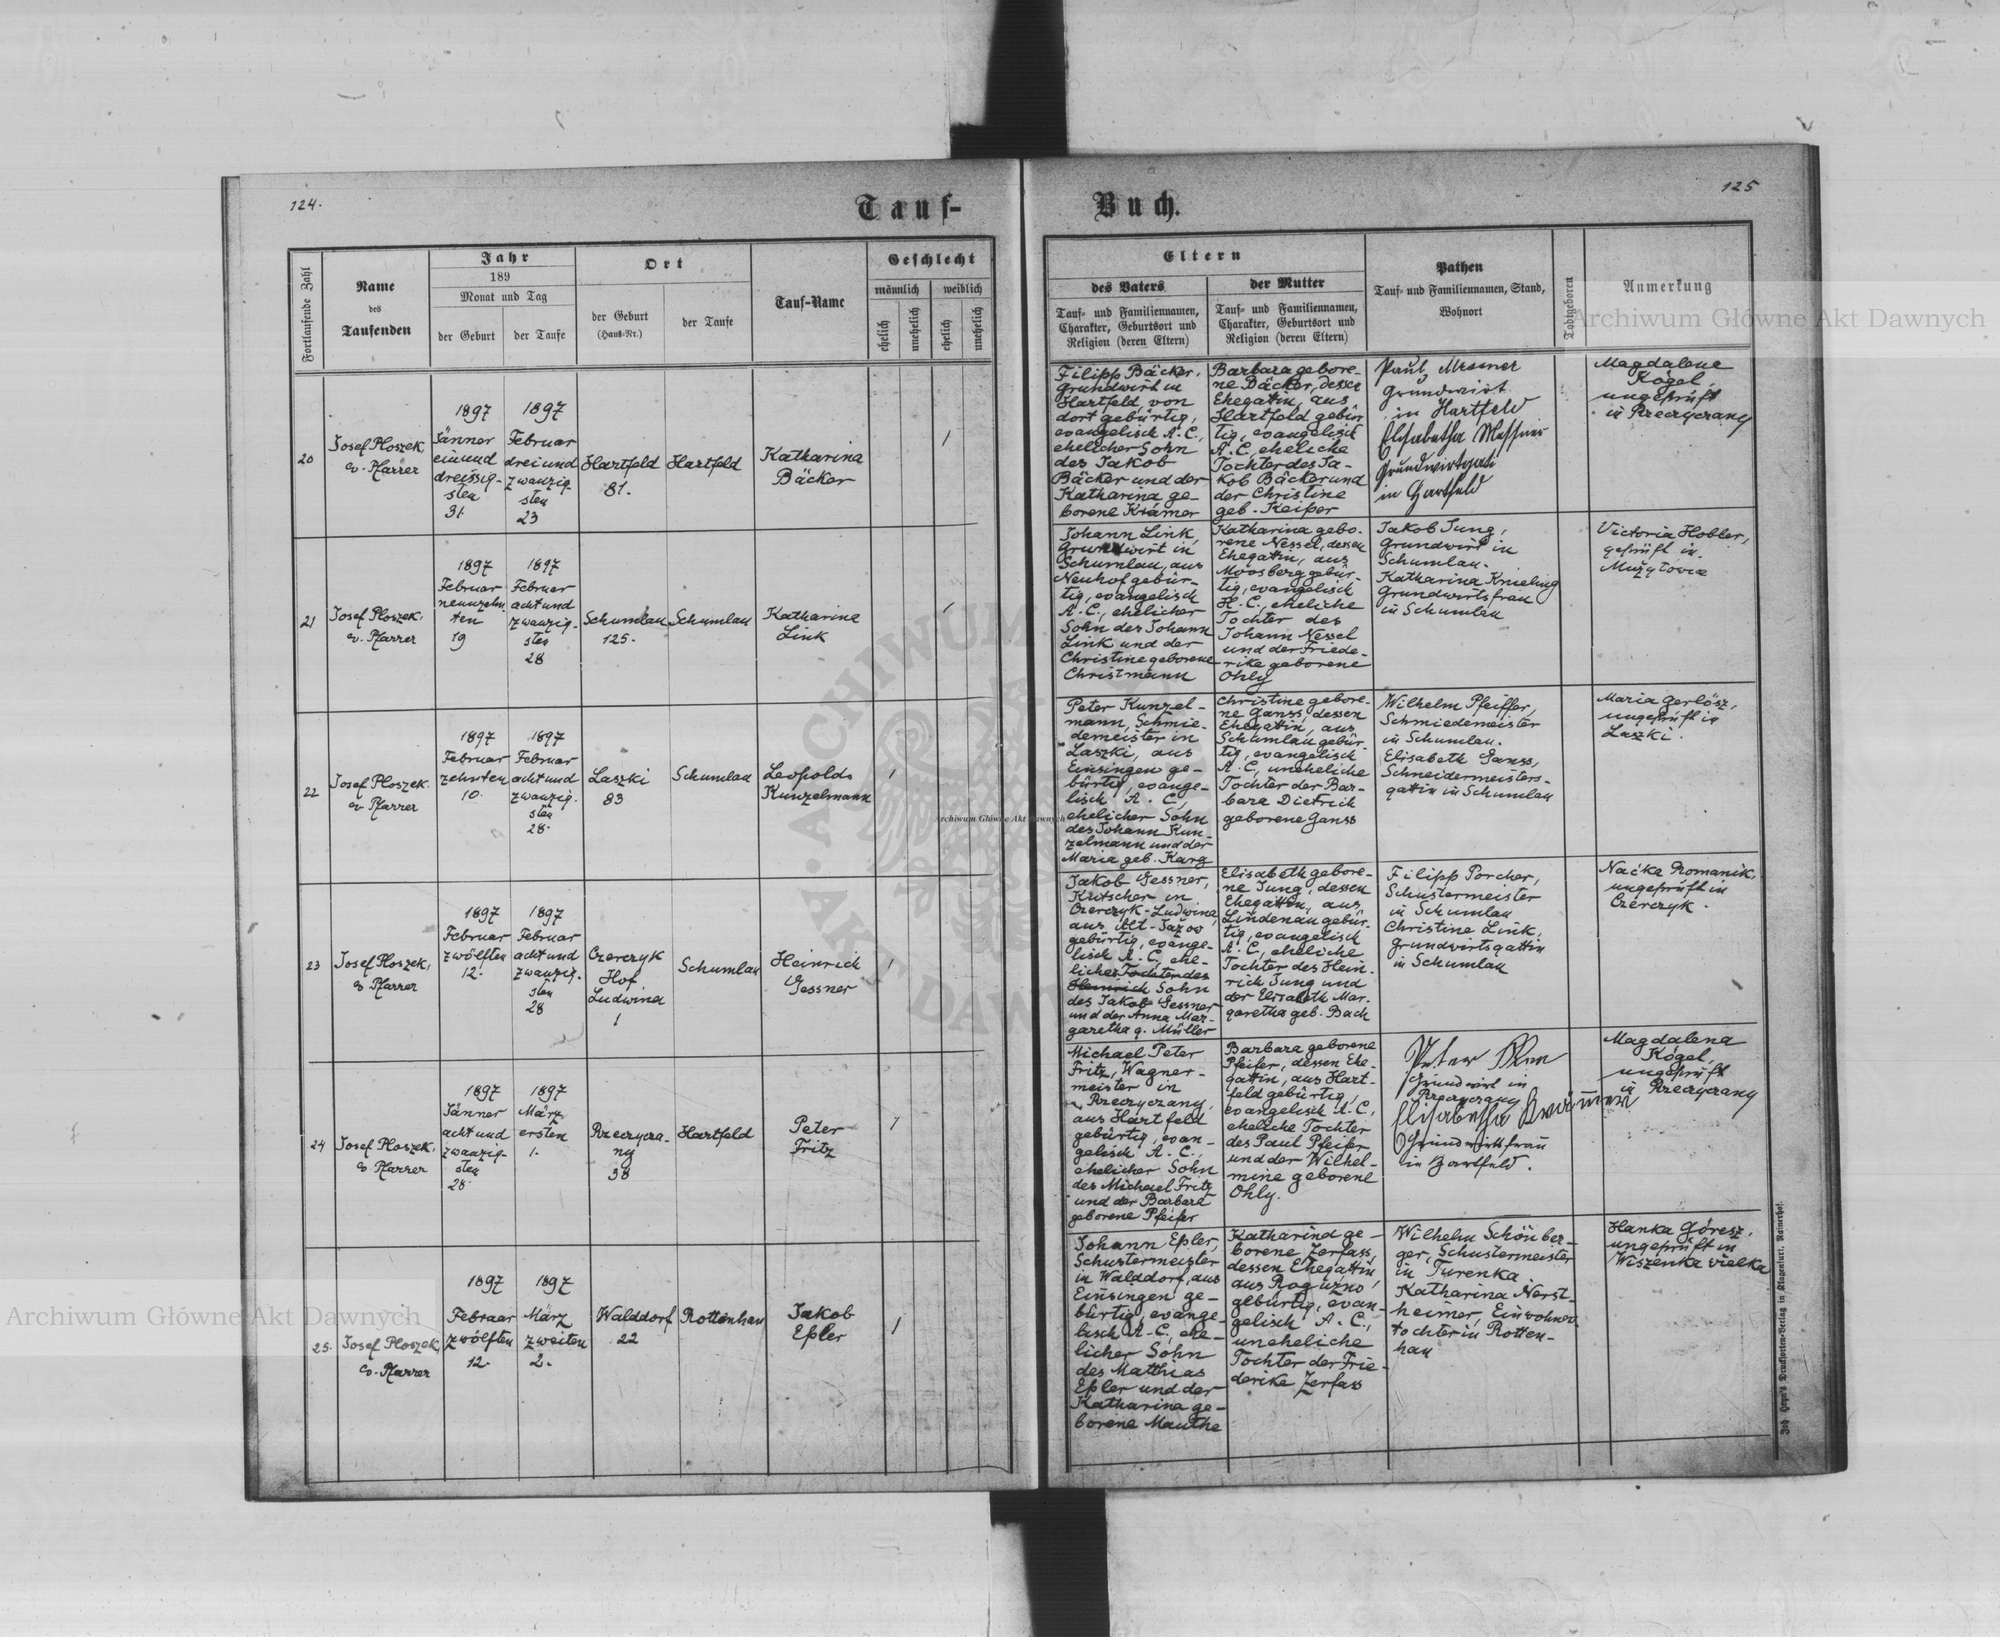 124.
Tauf-
Fortlaufende Zahl
Name
des
Taufenden
Jahr
189
Monat und Tag
der Geburt
der Taufe
Ort
der Geburt
(Haus-Nr.)
der Taufe
Tauf-Name
Geschlecht
männlich
weiblich
ehelich
unehelich
ehelich
unehelich
20
Josef Ploszek,
ev. Pfarrer
1897
Jänner
einund
dreissig-
sten
31.
1897
Februar
dreiund
zwanzig-
sten
23
Hartfeld
81.
Hartfeld
Katharina
Bäcker
21
Josef Ploszek,
ev. Pfarrer
1897
Februar
neunzehn
ten
19
1897
Februar
achtund
zwanzig-
sten
28
Schumlau
125.
Schumlau
Katharine
Link
22
Josef Ploszek
ev. Pfarrer
1897
Februar
zehnten
10.
1897
Februar
achtund
zwanzig-
sten
28.
Laszki
83
Schumlau
Leopold
Kunzelmann
23
Josef Ploszek,
ev Pfarrer
1897
Februar
zwölften
12.
1897
Februar
achtund
zwanzig-
sten
28
Czerczyk
Hof
Ludwina
1
Schumlau
Heinrich
Gessner
24
Josef Ploszek,
ev Pfarrer
1897
Jänner
achtund
zwanzig-
sten
28.
1897
März
ersten
1.
Rzeczycza-
ny
38
Hartfeld
Peter
Fritz
25.
Josef Ploszek,
ev. Pfarrer
1897
Februar
zwölften
12.
1897
März
zweiten
2.
Walddorf
22
Rottenhan
Jakob
Eßler
Buch.
125
Eltern
des Vaters
Tauf- und Familiennamen,
Charakter, Geburtsort und
Religion (deren Eltern)
der Mutter
Tauf- und Familiennamen,
Charakter, Geburtsort und
Religion (deren Eltern)
Pathen
Tauf- und Familiennamen, Stand,
Wohnort
Todtgeboren
Anmerkung
Filipp Bäcker,
Grundwirt in
Hartfeld, von
dort gebürtig,
evangelisch A.C.,
ehelicher Sohn
des Jakob
Bäcker und der
Katharina ge-
borene Krämer
Barbara gebore-
ne Bäcker, dessen
Ehegattin, aus
Hartfeld gebür
tig, evangelisch
A.C., eheliche
Tochter des Ja-
kob Bäcker und
der Christine
geb. Keiper
Paul
Grundwirt
in Hartfeld
Elisabetha Messner
Grundwirtgati
in Hartfeld
Magdalene
Kögel,
ungeprüft
in Rzeczyczany
Johann Link,
Grundwirt in
Schumlau, aus
Neuhof gebür-
tig, evangelisch
A.C., ehelicher
Sohn des Johann
Link und der
Christine geborene
Christmann
Katharina gebo-
rene Nessel, dessen
Ehegattin, aus
Moosberg gebür-
tig, evangelisch
H.C., eheliche
Tochter des
Johann Nessel
und der Friede-
rike geborene
Ohly
Jakob Jung,
Grundwirt in
Schumlau.
Katharina Knieling
Grundwirtsfrau
in Schumlau
Victoria Hobler,
geprüft in
Mużyłowice
Peter Kunzel-
mann, Schmie-
demeister in
Laszki, aus
Einsingen ge-
bürtig, evange-
lisch A.C.,
ehelicher Sohn
des Johann Kun-
zelmann und der
Maria geb. Karg
Christine gebore-
ne Ganss, dessen
Ehegattin, aus
Schumlau gebür-
tig, evangelisch
A.C., uneheliche
Tochter der Bar-
bara Dietrich
geborene Ganss
Wilhelm Pfeiffer,
Schmiedemeister
in Schumlau.
Elisabeth Ganss,
Schneidermeisters-
gattin in Schumlau
Maria Gerlösz,
ungeprüft in
Laszki.
Jakob Gessner,
Kutscher in
Czerczyk-Ludwina,
aus Alt-Jazow
gebürtig, evange-
lisch A.C., ehe-
licher Tochter des
Heinrich Sohn
des Jakob Gessner
und der Anna Mar-
garetha g. Müller
Elisabeth gebore-
ne Jung, dessen
Ehegattin, aus
Lindenau gebür-
tig, evangelisch
A.C., eheliche
Tochter des Hein-
rich Jung und
der Elisabeth Mar-
garetha geb. Bach
Filipp Porcher,
Schustermeister
in Schumlau
Christine Link,
Grundwirtsgattin
in Schumlau
Naćka Romanik,
ungeprüft in
Czerczyk.
Michael Peter
Fritz, Wagner-
meister in
Rzeczyczany,
aus Hartfeld
gebürtig, evan-
gelisch A.C.,
ehelicher Sohn
des Michael Fritz
und der Barbara
geborene Pfeifer
Barbara geborene
Pfeifer, dessen Ehe-
gattin, aus Hart-
feld gebürtig,
evangelisch A.C.,
eheliche Tochter
des Paul Pfeifer
und der Wilhel-
mine geborene
Ohly.
Peter
Grundwirt in
Rzeczyczany
Elisabetha Krämer
Grundwirtfrau
in Hartfeld.
Magdalena
Kögel,
ungeprüft
in Rzeczyczany
Johann Eßler,
Schustermeister
in Walddorf, aus
Einsingen ge-
bürtig, evange-
lisch A.C., ehe-
licher Sohn
des Matthias
Eßler und der
Katharina ge-
borene Mauthe
Katharina ge-
borene Zerfass,
dessen Ehegattin
aus Roguzno,
gebürtig, evan-
gelisch A.C.,
uneheliche
Tochter der Frie-
derike Zerfass
Wilhelm Schönber-
ger, Schustermeister
in Turenka.
Katharina Nerst-
heimer, Einwohner
tochter in Rotten-
han
Hanka Góresz,
ungeprüft in
Wiszenka wielka
Joh. Heyn's Drucksorten-Verlag in Klagenfurt, Kainerhof.
Archiwum Główne Akt Dawnych
Archiwum Główne Akt Dawnych
Archiwum Główne Akt Dawnych